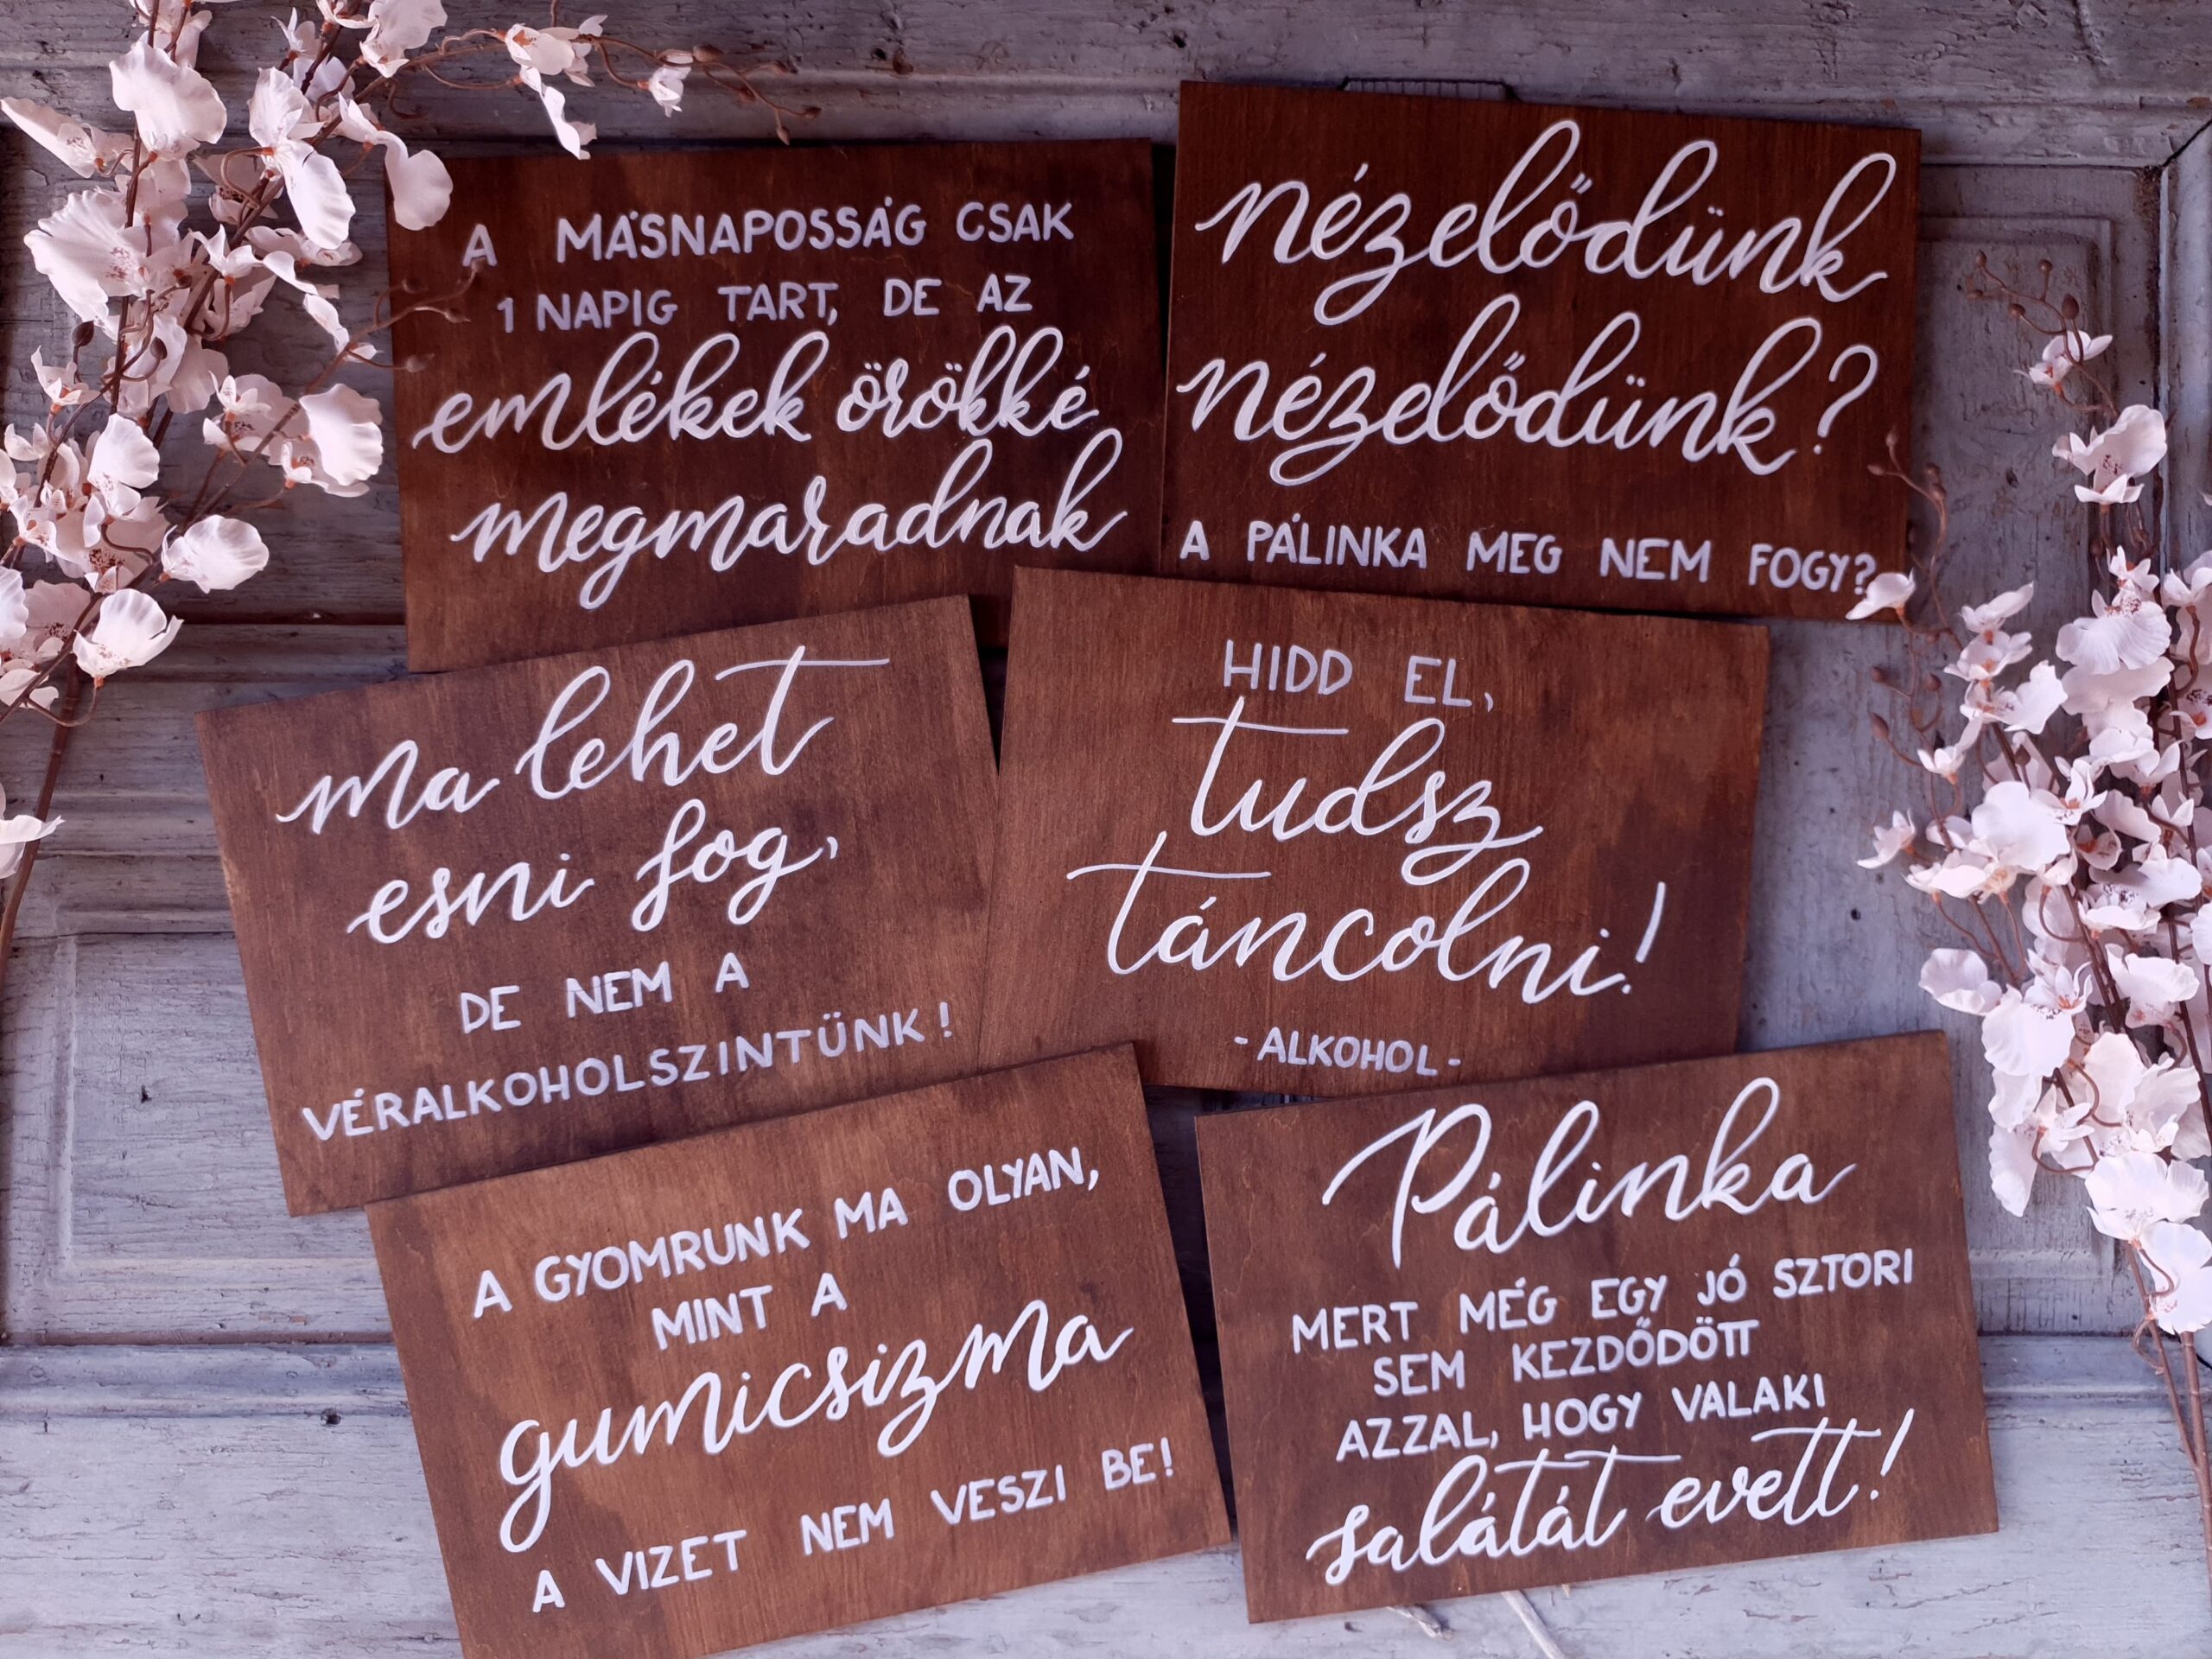 A MÁSNAPOSSÁG CSAK
1 NAPIG TART, DE AZ
emlékek örökké
megmaradnak
nézelődünk
nézelődünk?
A PÁLINKA MEG NEM FOGY?
ma lehet
esni fog,
DE NEM A
VÉRALKOHOLSZINTÜNK!
HIDD EL,
tudsz
táncolni!
-ALKOHOL-
A GYOMRUNK MA OLYAN,
MINT A
gumicsizma
A VIZET NEM VESZI BE!
Pálinka
MERT MÉG EGY JÓ SZTORI
SEM KEZDŐDÖTT
AZZAL, HOGY VALAKI
salátát evett!